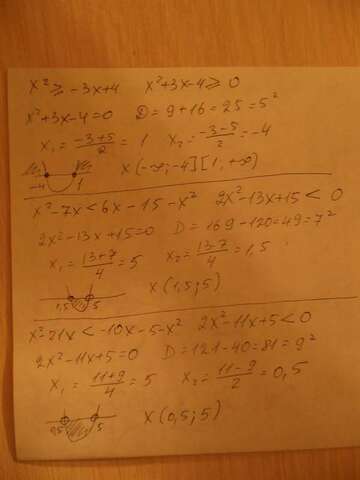 x² ≥ -3x+4   x²+3x-4 ≥ 0
x²+3x-4=0   D=9+16=25=5²
x₁ = (-3+5)/2 = 1   x₂ = (-3-5)/2 = -4
-4 1   x(-∞;-4][1,+∞)
x²-7x < 6x-15-x²   2x²-13x+15 < 0
2x²-13x+15=0   D=169-120=49=7²
x₁ = (13+7)/4 = 5   x₂ = (13-7)/4 = 1,5
1,5 5   x(1,5;5)
x²-21x < -10x-5-x²   2x²-11x+5 < 0
2x²-11x+5=0   D=121-40=81=9²
x₁ = (11+9)/4 = 5   x₂ = (11-9)/2 = 0,5
0,5 5   x(0,5;5)